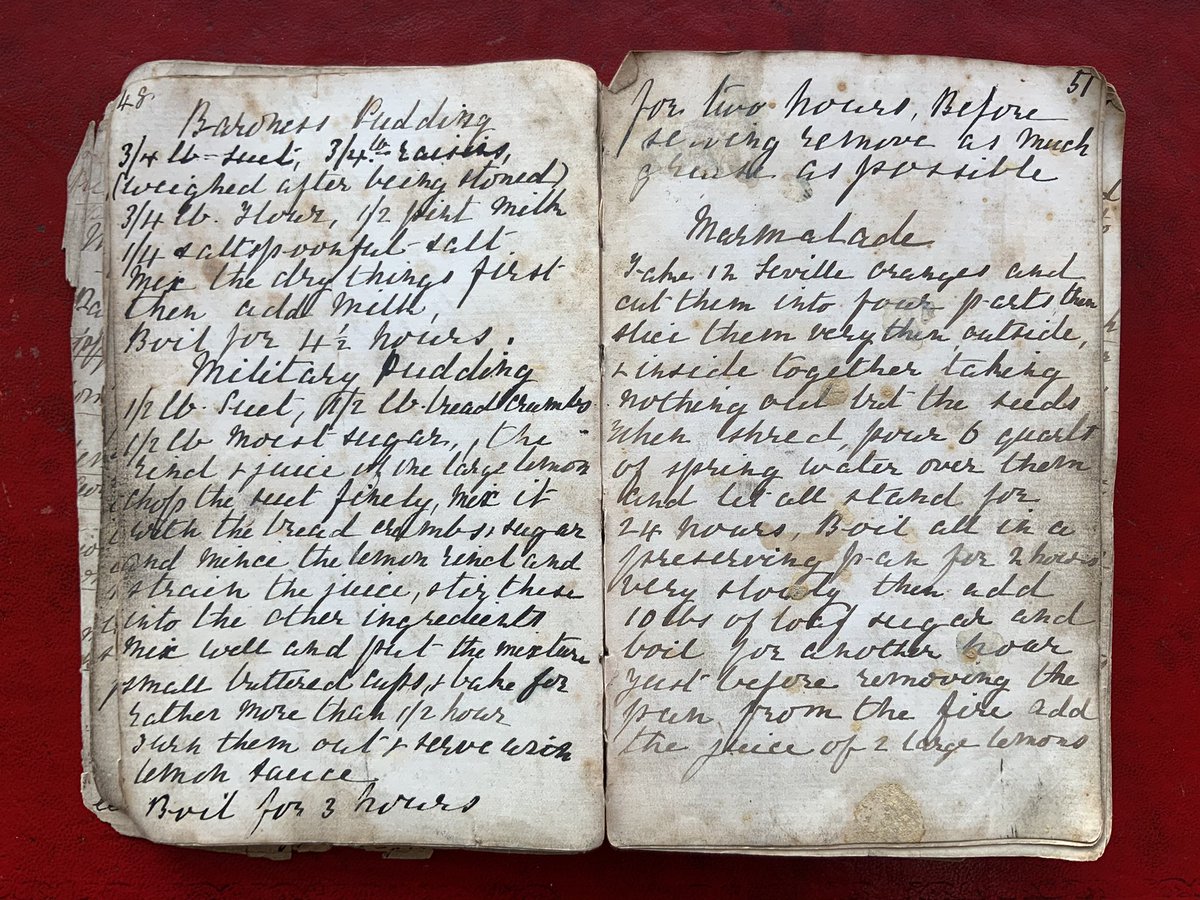 48
Baroness Pudding
3/4 lb suet, 3/4 lb raisins,
(weighed after being stoned)
3/4 lb. Flour, 1/2 pint Milk
1/4 saltspoonful salt
Mix the dry things first
then add Milk,
Boil for 4½ hours.
Military Pudding
1/2 lb Suet, 1/2 lb bread crumbs
1/2 lb moist sugar, the
rind & juice of one large lemon
chop the suet finely, mix it
with the bread crumbs & sugar
and mince the lemon rind and
strain the juice, stir these
into the other ingredients
Mix well and put the mixture
small buttered cups, & bake for
rather more than 1/2 hour
Turn them out & serve with
lemon sauce
Boil for 3 hours
51
for two hours, Before
serving remove as much
as possible
Marmalade
Take 12 Seville oranges and
cut them into four parts, then
slice them very thin outside,
& inside together taking
nothing out but the seeds
When shred, pour 6 quarts
of spring water over them
and let all stand for
24 hours, Boil all in a
preserving pan for 2 hours
very slowly then add
10 lbs of loaf sugar and
boil for another hour
Just before removing the
pan from the fire add
the juice of 2 large lemons